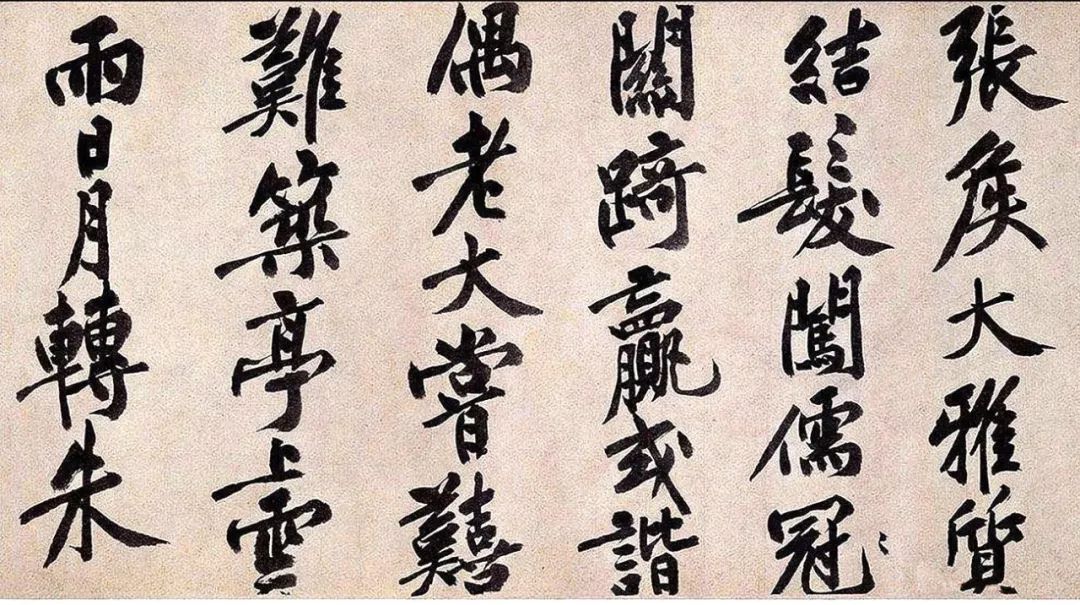 張侯大雅質
結髮闖儒冠〻
關踦贏或諧
偶老大嘗囏
難築亭上雲
雨日月轉朱